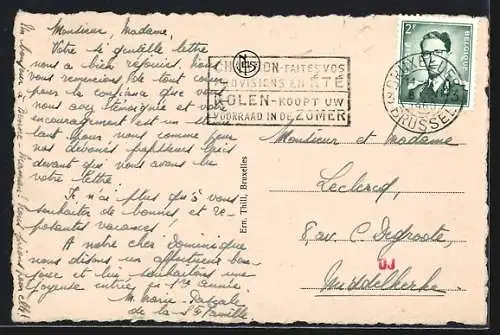 Monsieur, Madame,
Votre si gentille lettre
nous a bien réjouies. Nous
vous remercions de tout coeur
pour la confiance que vous
nous avez témoignée et vos
encouragement est un
tant pour nous comme pour
nos dévoués
devant que nous avons lu
votre lettre.
Je n'ai plus qu'à vous
souhaiter de bonnes et re-
posantes vacances.
A notre cher Dominique
nous disons un affectueux bon-
jour et lui souhaitons une
joyeuse entrée en 1re année.
M. Marie-Pascale
de la Ste Famille
CHARBON-FAITES VOS
PROVISIONS EN ETE
KOLEN-KOOPT UW
VOORRAAD IN DE ZOMER
NELS
2F
BELGIQUE
BRUXELLES
BRUSSEL
Ern. Thill, Bruxelles
Monsieur et Madame
Leclercq,
8, av. C. Degroote,
Middelkerke.
UJ